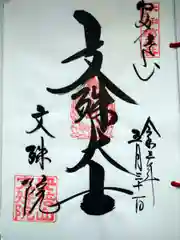 安倍山
文殊大士
令和三年
五月三十一日
文殊院